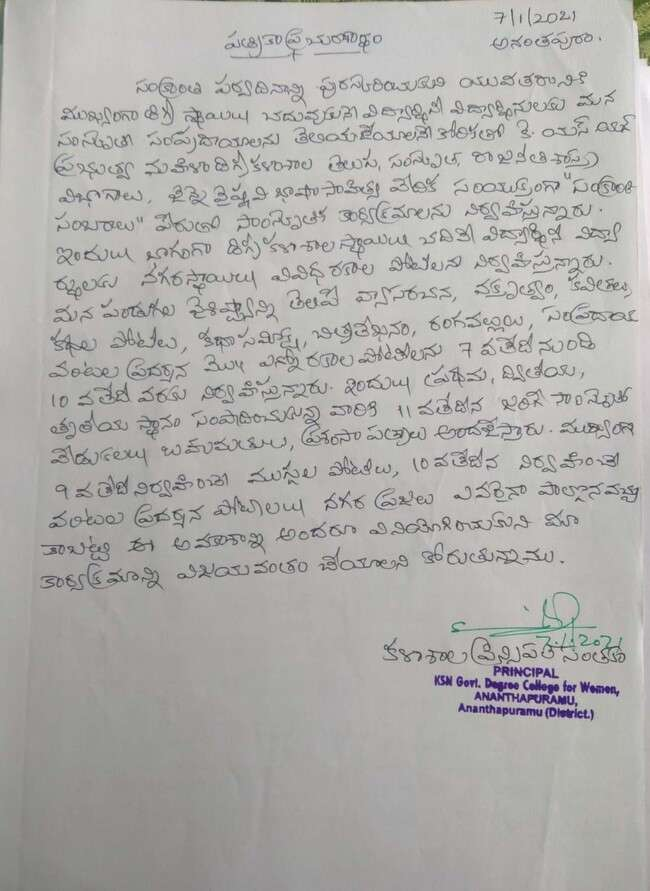 7/1/2021
పత్రికా ప్రచురణార్థం
అనంతపురం.
సంక్రాంతి పర్వదినాన్ని పురస్కరించుకుని యువతరానికి
ముఖ్యంగా డిగ్రీ స్థాయిలు చదువుకునే విద్యార్థినీ విద్యార్థినులకు మన
సంస్కృతీ సంప్రదాయాలను తెలియజేయాలనే కోరికతో కె. యస్ యన్
ప్రభుత్వ మహిళా డిగ్రీ కళాశాల తెలుగు, సంస్కృత, రాజనీతిశాస్త్ర
విభాగాలు, వైష్ణవి భాషా సాహిత్య వేదిక సంయుక్తంగా "సంక్రాంతి
సంబరాలు" పేరుతో సాంస్కృతిక కార్యక్రమాలను నిర్వహిస్తున్నారు.
ఇందులు భాగంగా డిగ్రీ కళాశాల స్థాయిలు చదివే విద్యార్థినీ విద్యా
ర్థులకు నగరస్థాయిలు వివిధ రకాల పోటీలను నిర్వహిస్తున్నారు.
మన పండుగల వైశిష్ట్యాన్ని తెలిపే వ్యాసరచన, వక్తృత్వం, కవితలు,
కథల పోటీలు, చిత్రలేఖనం, రంగవల్లులు, సంప్రదాయ
వంటల ప్రదర్శన మొ॥ ఎన్నో రకాల పోటీలను 7 వతేదీ నుండి
10 వతేదీ వరకు నిర్వహిస్తున్నారు. ఇందులు ప్రథమ, ద్వితీయ,
తృతీయ స్థానం సంపాదించుకున్న వారికి 11 వతేదీన జరిగే
బహుమతులు, ప్రశంసా పత్రాలు అందజేస్తారు. ముఖ్యంగా
9 వతేదీ నిర్వహించే ముగ్గుల పోటీలు, 10 వతేదీన నిర్వహించే
వంటల ప్రదర్శన పోటీలలు నగర ప్రజలు ఎవరైనా పాల్గొనవచ్చు
కాబట్టి ఈ అవకాశాన్ని అందరూ వినియోగించుకుని మా
కార్యక్రమాన్ని విజయవంతం చేయాలని కోరుతున్నాము.
7.1.2021
కళాశాల ప్రిన్సిపల్ సంతకం
PRINCIPAL
KSN Govt. Degree College for Women,
ANANTHAPURAMU,
Ananthapuramu (District.)